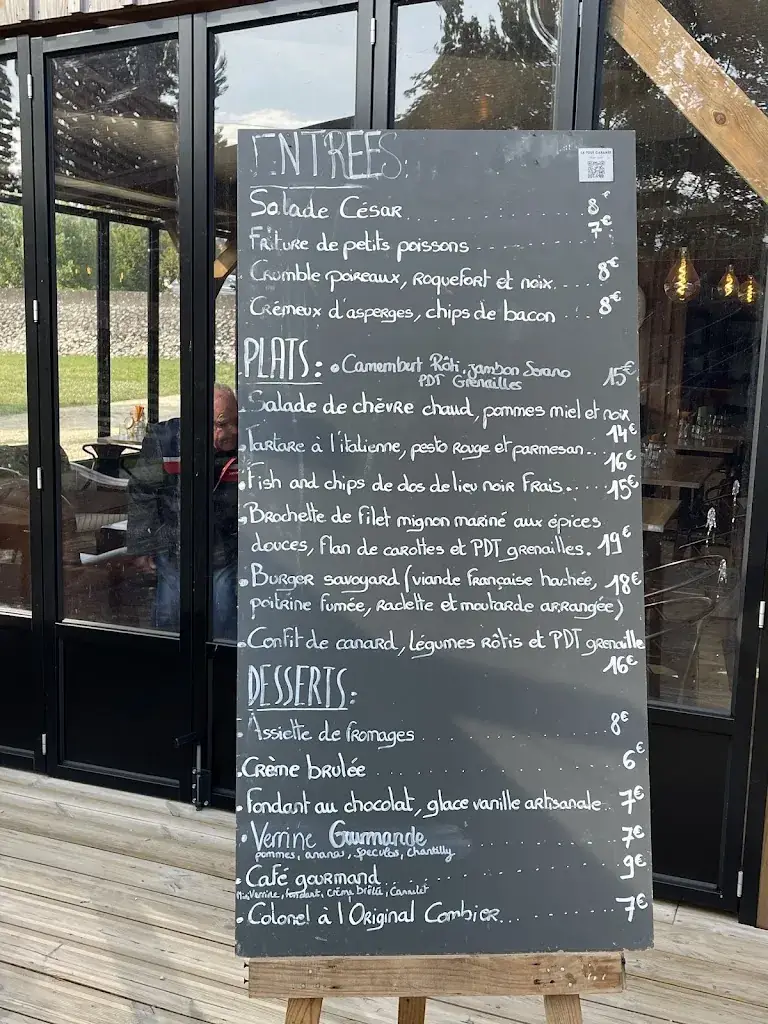 ENTREES:
Salade César ........ 8€
Friture de petits poissons ........ 7€
Crumble poireaux, roquefort et noix .... 8€
Crémeux d'asperges, chips de bacon 8€
PLATS: • Camembert Rôti, jambon Serano
PDT Grenailles 15€
• Salade de chèvre chaud, pommes miel et noix
14€
• Tartare à l'italienne, pesto rouge et parmesan.. 16€
• Fish and chips de dos de lieu noir frais.... 15€
• Brochette de filet mignon mariné aux épices
douces, flan de carottes et PDT grenailles. 19€
• Burger savoyard (viande française hachée, 18€
poitrine fumée, raclette et moutarde arrangée)
• Confit de canard, légumes rôtis et PDT grenaille
16€
DESSERTS:
• Assiette de fromages ........ 8€
• Crème brulée ........ 6€
• Fondant au chocolat, glace vanille artisanale. 7€
• Verrine Gourmande ........ 7€
pommes, ananas, speculos, chantilly
• Café gourmand ........ 9€
Mini Verrine, fondant, crème brûlée, Cannelet
• Colonel à l'Original Combier... 7€